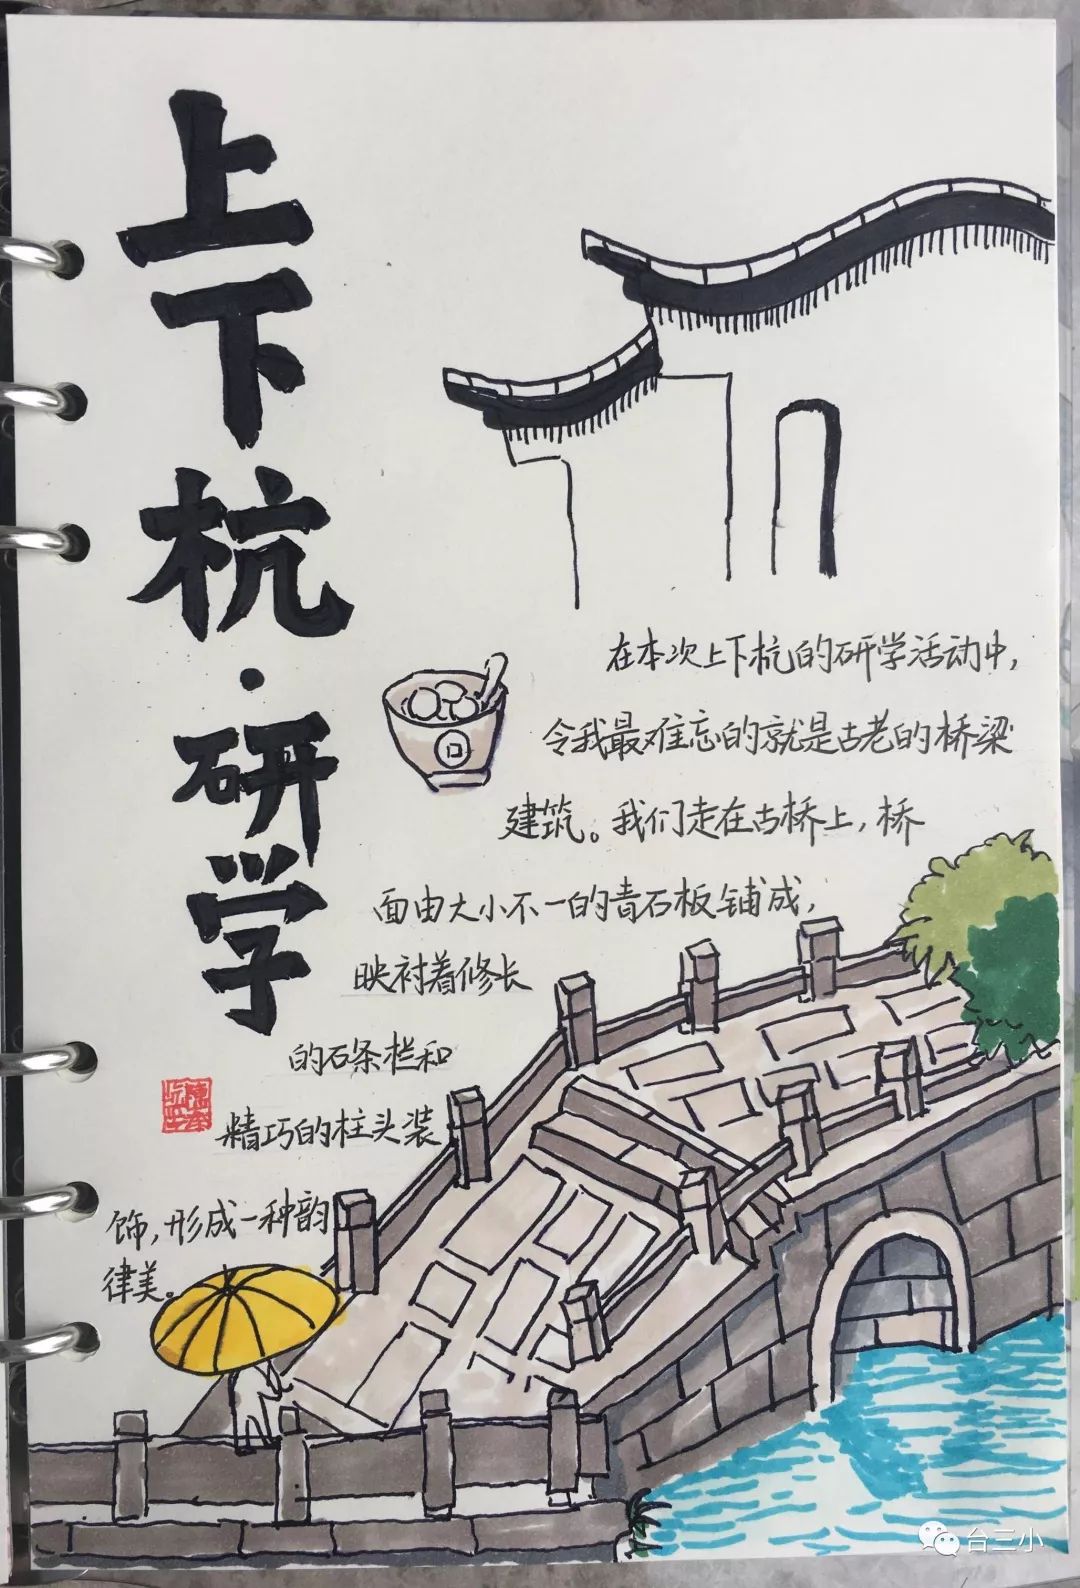 上下杭·研学
在本次上下杭的研学活动中，
令我最难忘的就是古老的桥梁
建筑。我们走在古桥上，桥
面由大小不一的青石板铺成，
映衬着修长
的石条栏和
精巧的柱头装
饰，形成一种韵
律美。
台三小